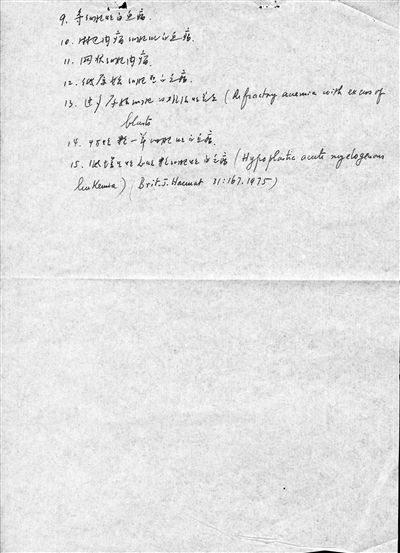 9. 单细胞性白血病.
10. 淋巴肉瘤细胞性白血病.
11. 网状细胞肉瘤.
12. 低原始细胞型白血病.
13. 过多原始细胞 难治性贫血 (Refractory anemia with excess of
blasts
14. 慢性粒—单细胞性白血病.
15. 低增生性急性粒细胞性白血病 (Hypoplastic acute myelogenous
leukemia) (Brit. J. Haemat 31:167. 1975)